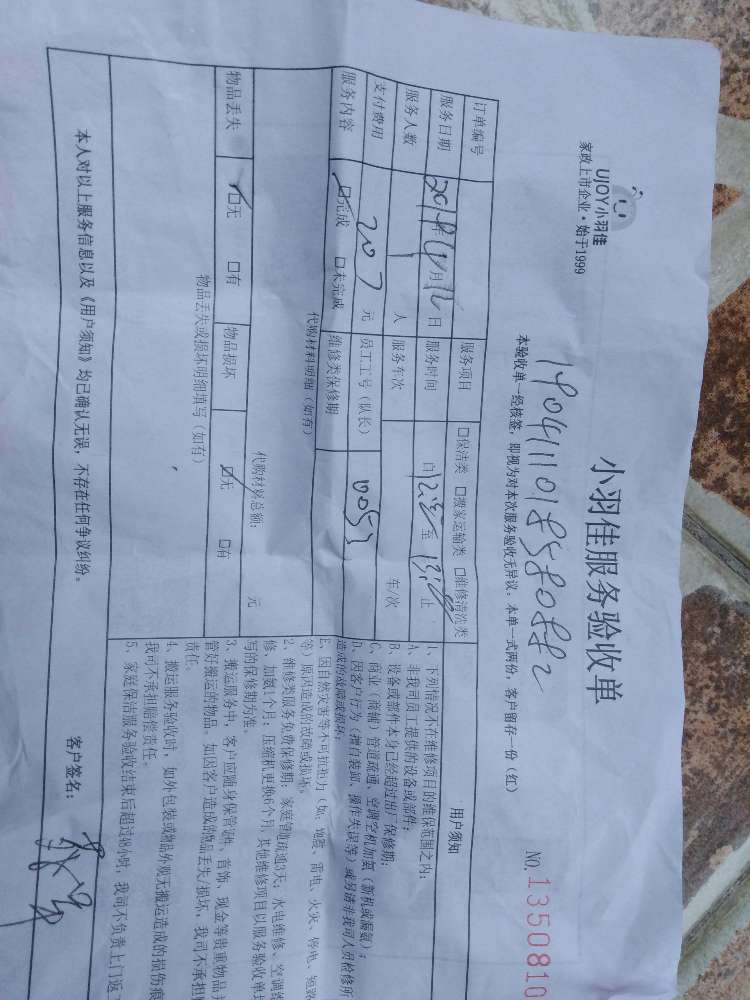 UJOY小羽佳
家政上市企业·始于1999
小羽佳服务验收单
NO. 1350810
本验收单一经核签,即视为对本次服务验收无异议。本单一式两份,客户留存一份(红)
订单编号
服务项目 □保洁类 □搬家运输类 □维修清洗类
服务日期 年 月 12 日 服务时间 自 至 止
服务人数 1 人 服务车次 车/次
支付费用 元 员工工号(队长) 0053
服务内容 ☑完成 □未完成 维修类保修期
代购材料明细(如有)
代购材料总额: 元
物品丢失 ☑无 □有 物品损坏 ☑无 □有
物品丢失或损坏明细填写(如有)
本人对以上服务信息以及《用户须知》均已确认无误,不存在任何争议纠纷。
用户须知
1、下列情况不在维修项目的维保范围之内:
A、非我司员工提供的设备或部件;
B、设备或部件本身已经超过出厂保修期;
C、商业(商铺)管道疏通、空调空机加氨(新机或漏氨);
D、因客户行为(擅自装卸、操作失误等)或另请非我司人员检修所
造成的故障或损坏;
E、因自然灾害等不可抗拒力(如:地震、雷电、火灾、停电、短路
等)原因造成的故障或损坏。
2、维修类服务免费保修期:家庭管道疏通3天;水电维修、空调
修、加氨1个月;压缩机更换6个月,其他维修项目以服务验收单
写的保修期为准。
3、搬运服务中,客户应随身保管证件、首饰、现金等贵重物品并
管好搬运的物品。如因客户造成的物品丢失/损坏,我司不承担
责任。
4、搬运服务验收时,如外包装或物品外观无搬运造成的损伤痕
我司不承担赔偿责任。
5、家庭保洁服务验收结束后超过48小时,我司不负责上门返
客户签名: